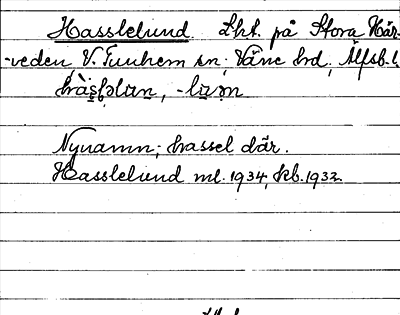 Hasslelund. Lht. på Stora Här-
-veden V. Tunhem sn; Väne hd, Älfsb. l.
Nynamn; hassel där.
Hasslelund ml. 1934, kb. 1932